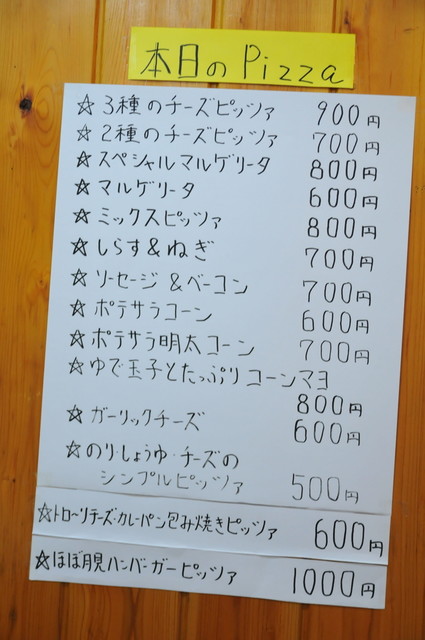 本日のPizza
☆3種のチーズピッツァ 900円
☆2種のチーズピッツァ 700円
☆スペシャルマルゲリータ 800円
☆マルゲリータ 600円
☆ミックスピッツァ 800円
☆しらす&ねぎ 700円
☆ソーセージ&ベーコン 700円
☆ポテサラコーン 600円
☆ポテサラ明太コーン 700円
☆ゆで玉子とたっぷりコーンマヨ
800円
☆ガーリックチーズ 600円
☆のり・しょうゆ・チーズの
シンプルピッツァ 500円
☆トロ〜リチーズ・カレーパン包み焼きピッツァ 600円
☆ほぼ月見ハンバーガーピッツァ 1000円